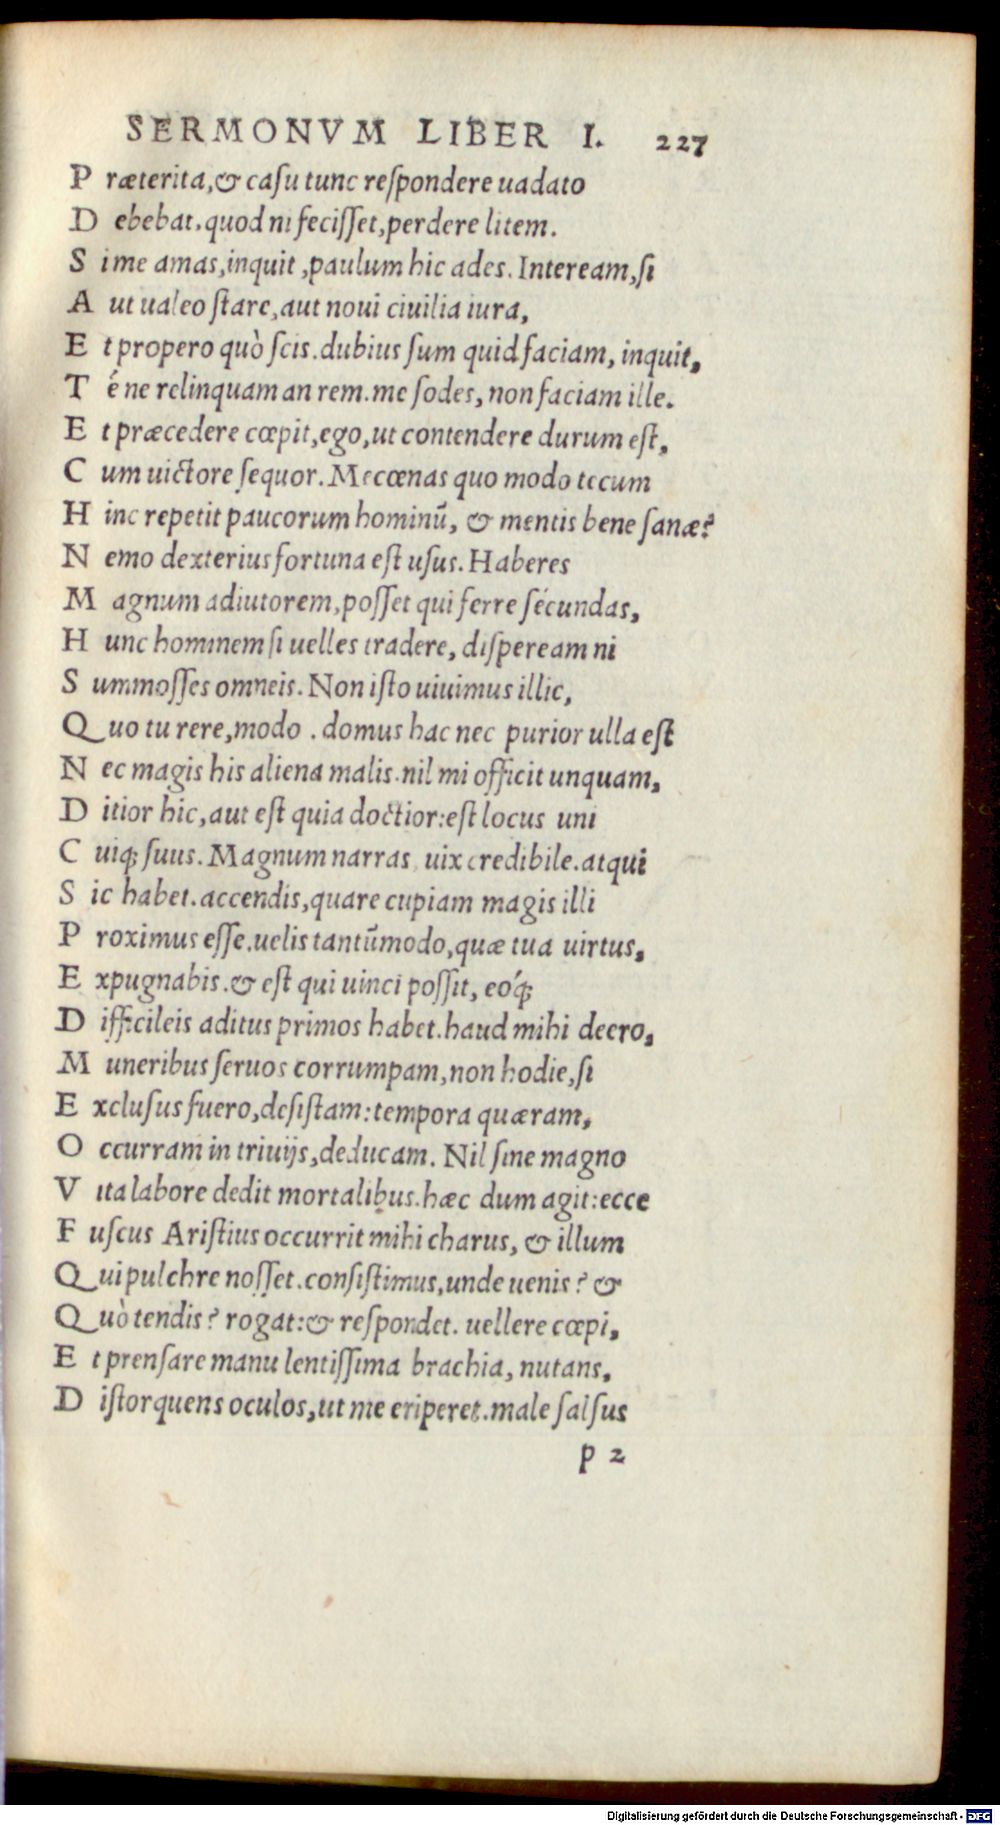 SERMONVM LIBER I. 227
P ræterita,& casu tunc respondere uadato
D ebebat. quod ni fecisset, perdere litem.
S i me amas, inquit, paulum hic ades. Inteream, si
A ut ualeo stare, aut noui ciuilia iura,
E t propero quò scis. dubius sum quid faciam, inquit,
T é ne relinquam an rem. me sodes, non faciam ille.
E t præcedere cœpit, ego, ut contendere durum est,
C um uictore sequor. Mecœnas quo modo tecum
H inc repetit paucorum hominū, & mentis bene sanæ?
N emo dexterius fortuna est usus. Haberes
M agnum adiutorem, posset qui ferre sécundas,
H unc hominem si uelles tradere, dispeream ni
S ummosses omneis. Non isto uiuimus illic,
Q uo tu rere, modo . domus hac nec purior ulla est
N ec magis his aliena malis. nil mi officit unquam,
D itior hic, aut est quia doctior: est locus uni
C uiq; suus. Magnum narras, uix credibile. atqui
S ic habet. accendis, quare cupiam magis illi
P roximus esse. uelis tantūmodo, quæ tua uirtus,
E xpugnabis. & est qui uinci possit, eóq;
D ifficileis aditus primos habet. haud mihi deero,
M uneribus seruos corrumpam, non hodie, si
E xclusus fuero, desistam: tempora quæram,
O ccurram in triuijs, deducam. Nil sine magno
V ita labore dedit mortalibus. hæc dum agit: ecce
F uscus Aristius occurrit mihi charus, & illum
Q ui pulchre nosset. consistimus, unde uenis? &
Q uò tendis? rogat: & respondet. uellere cœpi,
E t prensare manu lentissima brachia, nutans,
D istorquens oculos, ut me eriperet. male salsus
p 2
Digitalisierung gefördert durch die Deutsche Forschungsgemeinschaft - DFG